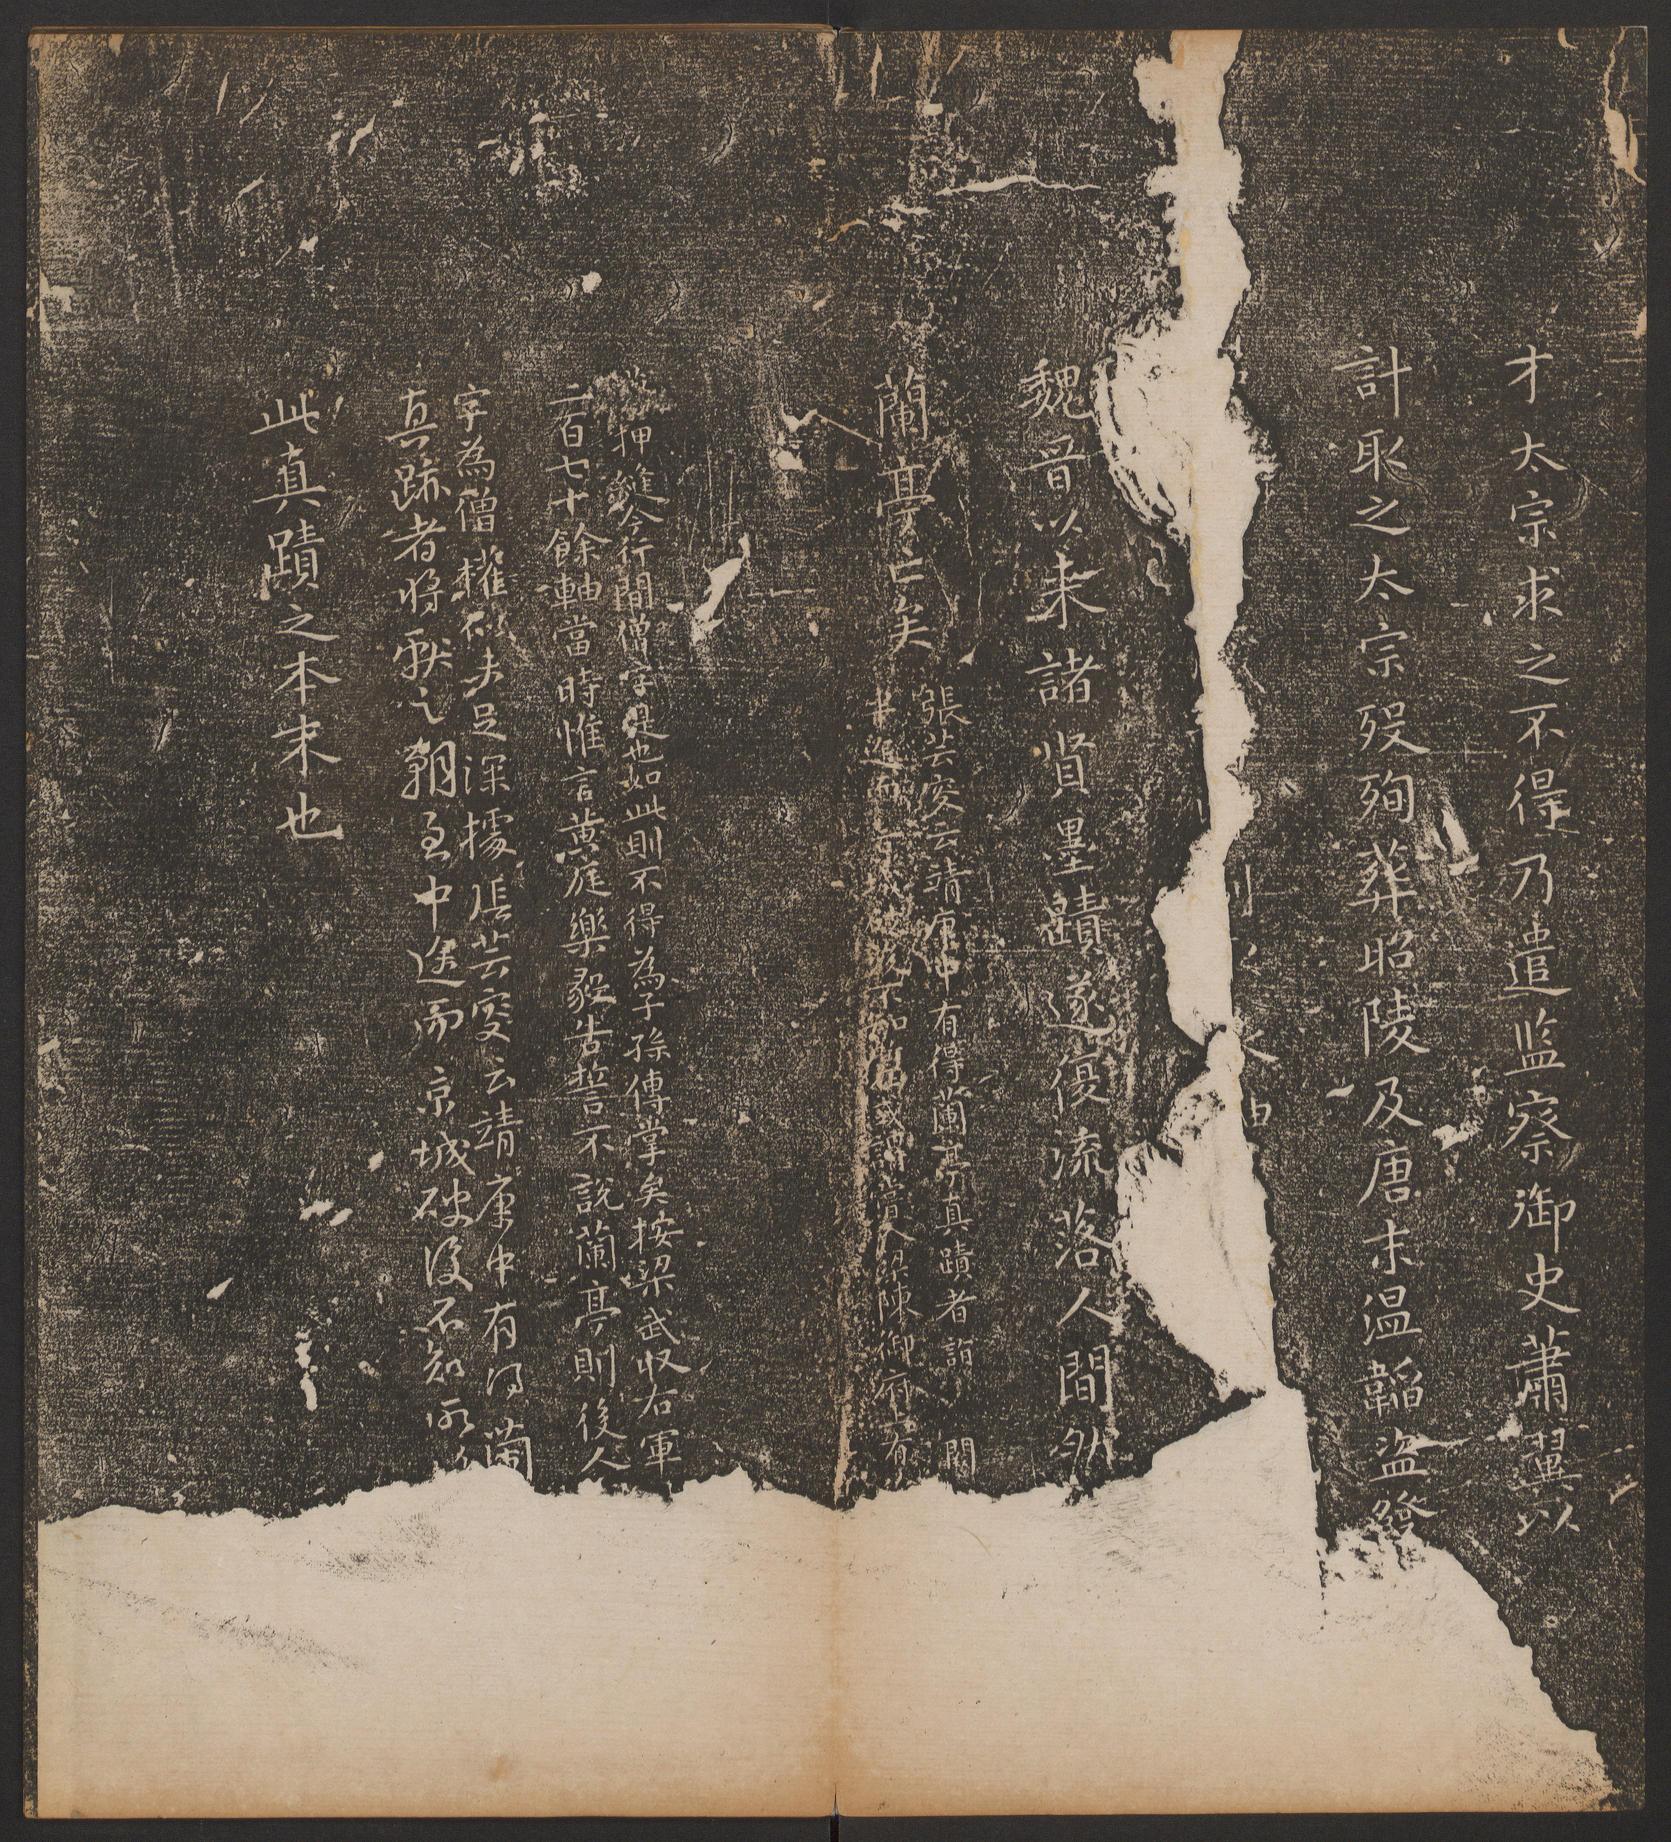 才太宗求之不得乃遣监察御史蕭翼以
計取之太宗歿殉葬昭陵及唐末温韜盗發
魏晋以来諸贤墨蹟遂復流落人間然
蘭亭亡矣
張芸叟云靖康中有得蘭亭真蹟者詣闕
半途而不知所在或謂當入梁陳御府者
押縫今行間僧字是也如此則不得為子孫傳掌矣按梁武収右軍
二百七十餘軸當時惟言黄庭樂毅告誓不説蘭亭則後人
字為僧權似未足深據張芸叟云靖康中有得蘭
真跡者将献之朝至中途而京城破後不知所
此真蹟之本末也